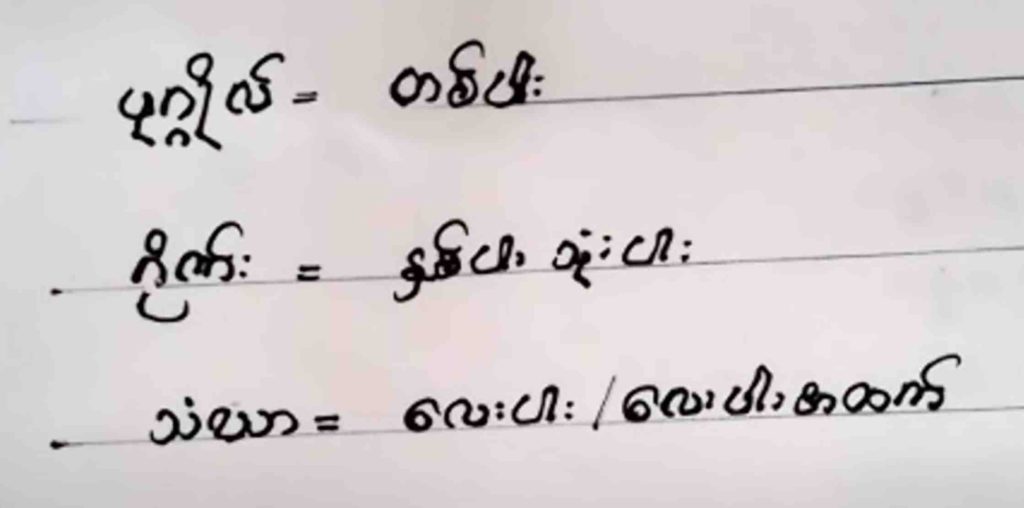 ပုဂ္ဂိုလ် = တစ်ပါး
ဂိုဏ်း = နှစ်ပါး သုံးပါး
သံဃာ = လေးပါး / လေးပါးအထက်